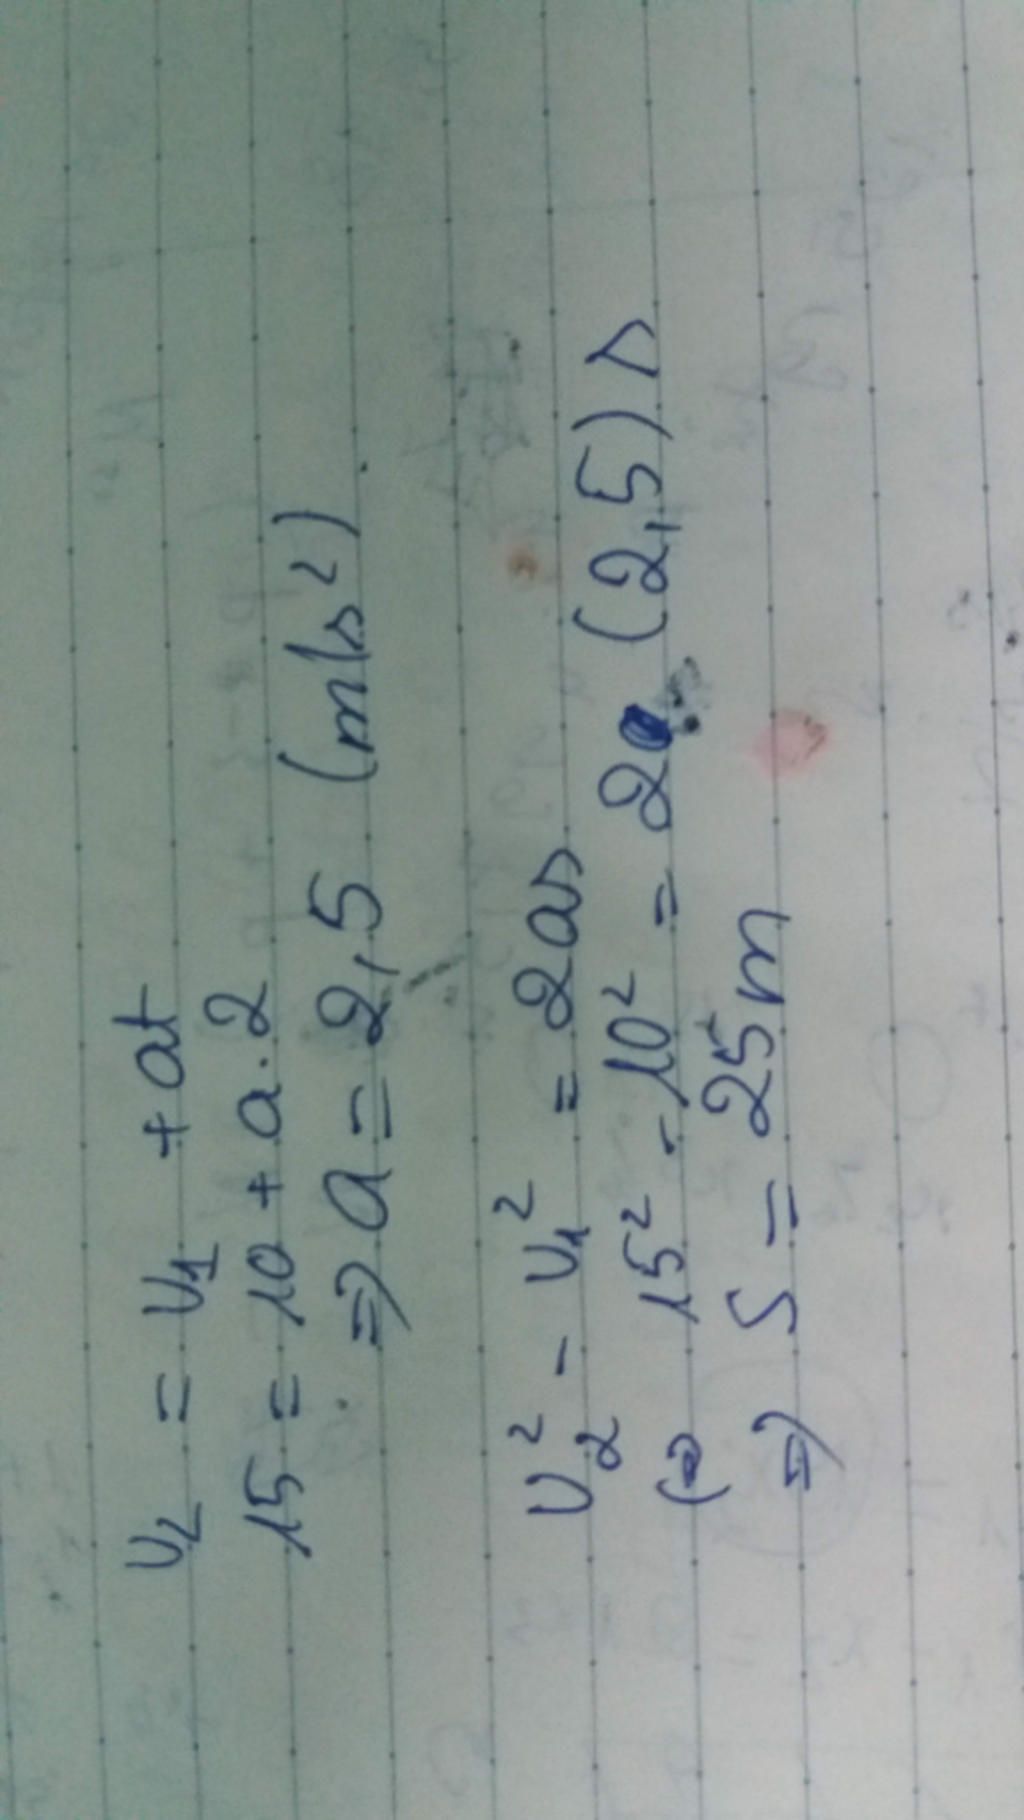 v₂ = v₁ + at
15 = 10 + a.2
=> a = 2,5 (m/s²)
v₂² - v₁² = 2as
(=) 15² - 10² = 2. (2,5) s
=) S = 25m